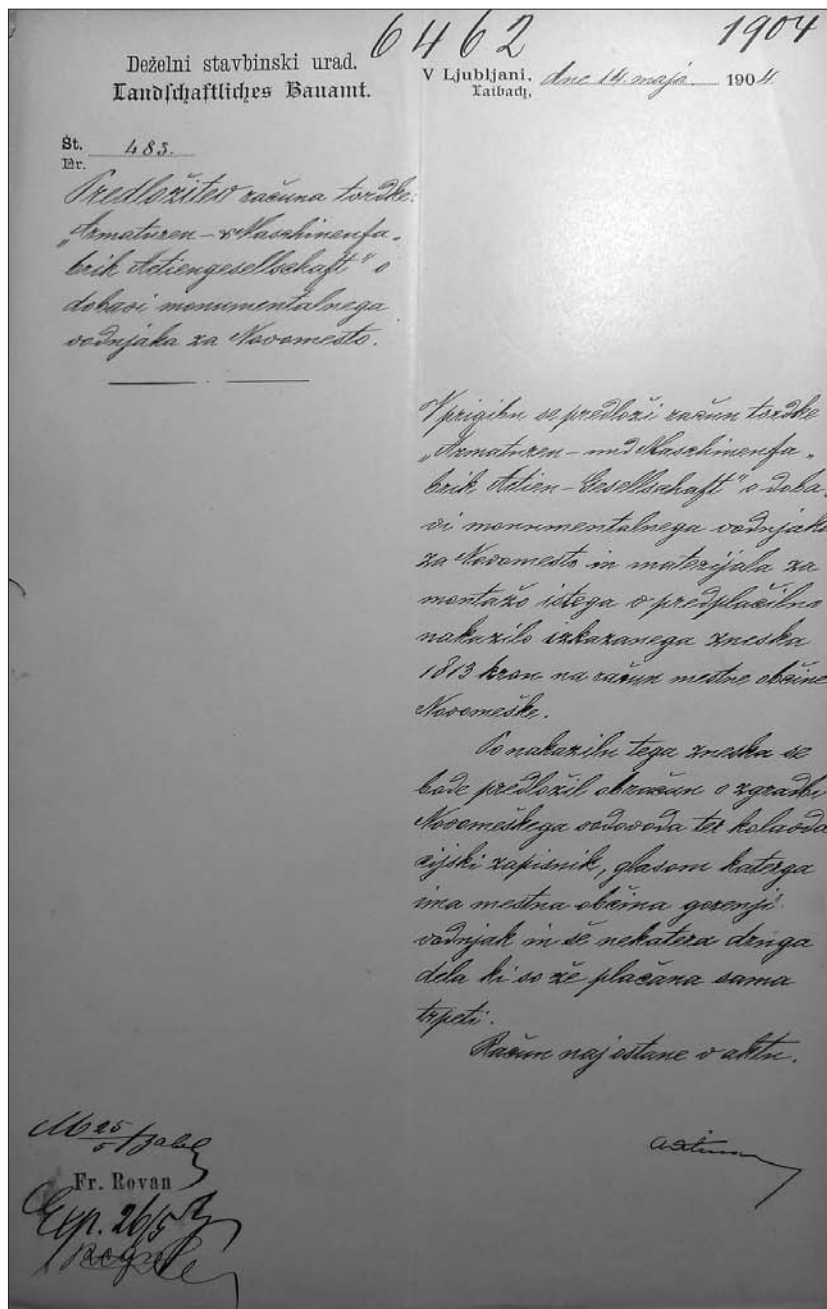 6462 1904
Deželni stavbinski urad.
Landschaftliches Bauamt.
V Ljubljani, dne 14. maja 1904
Laibach,
Št. 483.
Nr.
Predložitev računa tvrdke:
„Armaturen- & Maschinenfa-
brik Actiengesellschaft" o
dobavi monumentalnega
vodnjaka za Novomesto.
V prigibu se predloži račun tvrdke
„Armaturen- und Maschinenfa-
brik Actien-Gesellschaft" o doba-
vi monumentalnega vodnjaka
za Novomesto in materijala za
montažo istega v predplačilno
nakazilo izkazanega zneska
1813 kron na račun mestne občine
Novomeške.
Po nakazilu tega zneska se
bode predložil obračun o zgradbi
Novomeškega vodovoda ter
cijski zapisnik, glasom katerga
ima mestna občina gorenji
vodnjak in še nekatera druga
dela ki so že plačana sama
trpeti.
Račun naj ostane v aktu.
25/5
Fr. Rovan
Exp. 26/5